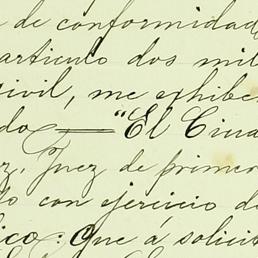 de conformidad
articulo dos mil
civil, me exhibe
do — "El Ciud
z, Juez de primer
lo con ejercicio d
ico: Que á solicit